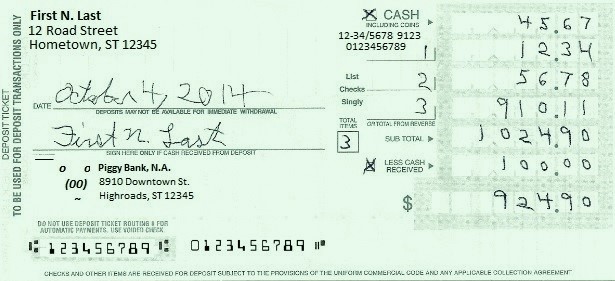 First N. Last
12 Road Street
Hometown, ST 12345
DEPOSIT TICKET
TO BE USED FOR DEPOSIT TRANSACTIONS ONLY
DATE October 4, 2014
DEPOSITS MAY NOT BE AVAILABLE FOR IMMEDIATE WITHDRAWAL
First N. Last
SIGN HERE ONLY IF CASH RECEIVED FROM DEPOSIT
o o Piggy Bank, N.A.
(00) 8910 Downtown St.
~ Highroads, ST 12345
DO NOT USE DEPOSIT TICKET ROUTING # FOR
AUTOMATIC PAYMENTS. USE VOIDED CHECK
⑆123456789⑆ 0123456789⑈
X CASH ▸ 45.67
INCLUDING COINS
12-34/5678 9123
0123456789
1 12.34
List
Checks 2 56.78
Singly 3 910.11
TOTAL
ITEMS OR TOTAL FROM REVERSE
3 SUB TOTAL ▸ 1024.90
X LESS CASH
RECEIVED ▸ 100.00
$ 924.90
CHECKS AND OTHER ITEMS ARE RECEIVED FOR DEPOSIT SUBJECT TO THE PROVISIONS OF THE UNIFORM COMMERCIAL CODE AND ANY APPLICABLE COLLECTION AGREEMENT